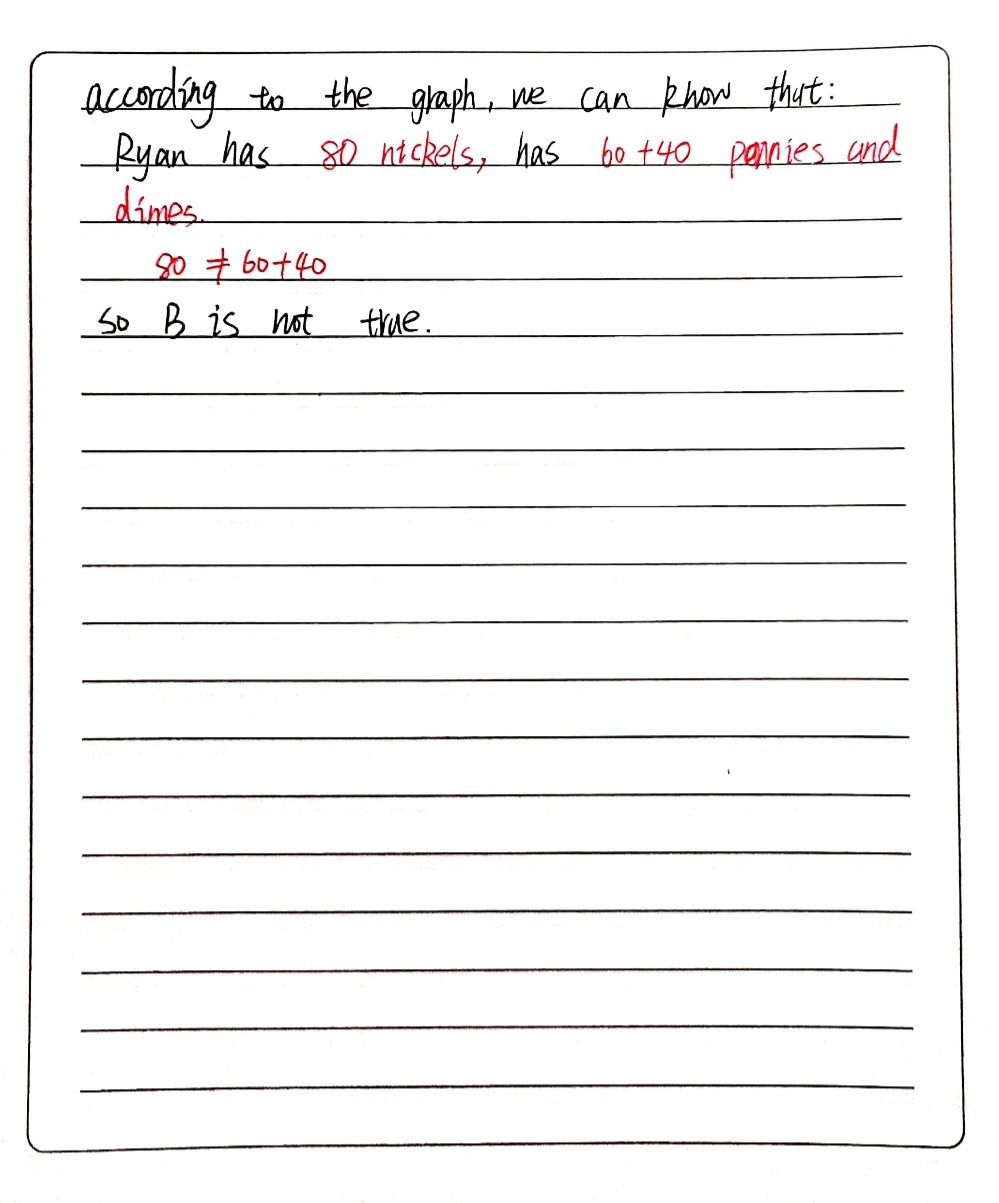 according to the graph, we can know that:
Ryan has 80 nickels, has 60+40 pennies and
dimes.
80 ≠ 60+40
so B is not true.